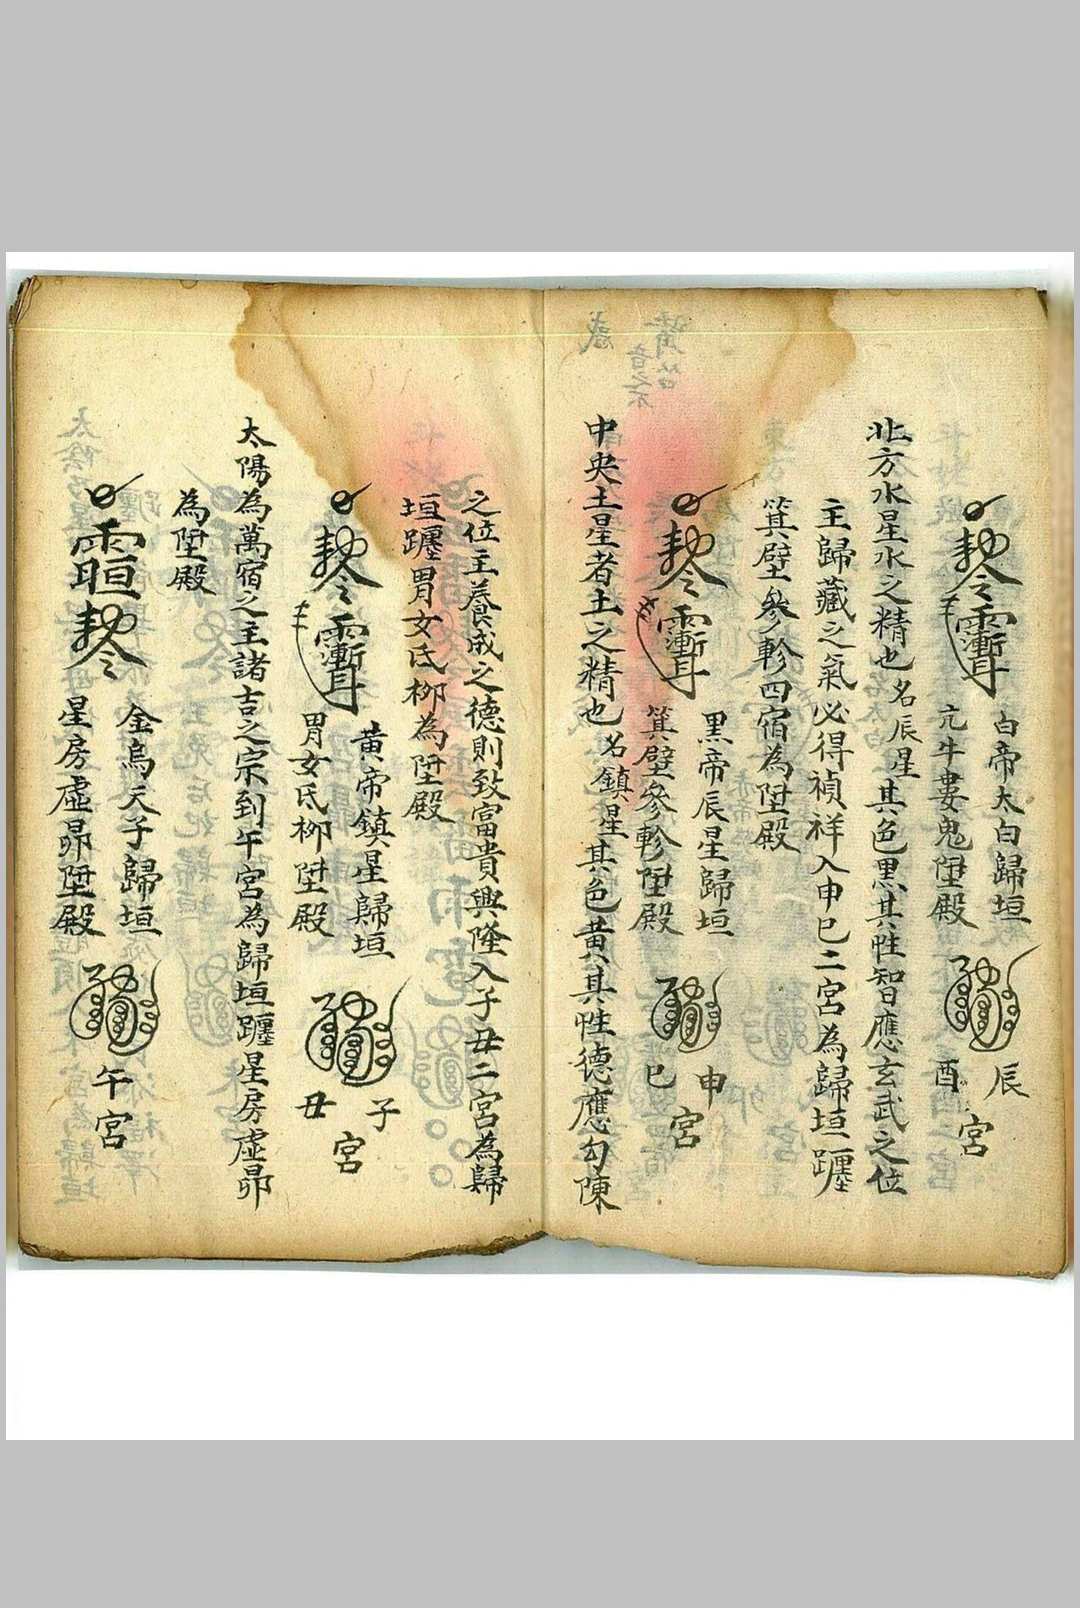 白帝太白歸垣
勅令
亢牛婁鬼陞殿
辰
酉
宮
北方水星水之精也名辰星其色黑其性智應玄武之位
主歸藏之氣必得禎祥入申巳二宮為歸垣躔
箕壁參軫四宿為陞殿
黑帝辰星歸垣
勅令
箕壁參軫陞殿
申
巳
宮
中央土星者土之精也名鎮星其色黄其性德應勾陳
之位主養成之德則致富貴興隆入子丑二宮為歸
垣躔胃女氐柳為陞殿
黄帝鎮星歸垣
勅令
胃女氐柳陞殿
子
丑
宮
太陽為萬宿之主諸吉之宗到午宮為歸垣躔星房虛昴
為陞殿
金烏天子歸垣
勅令
星房虛昴陞殿
午
宮